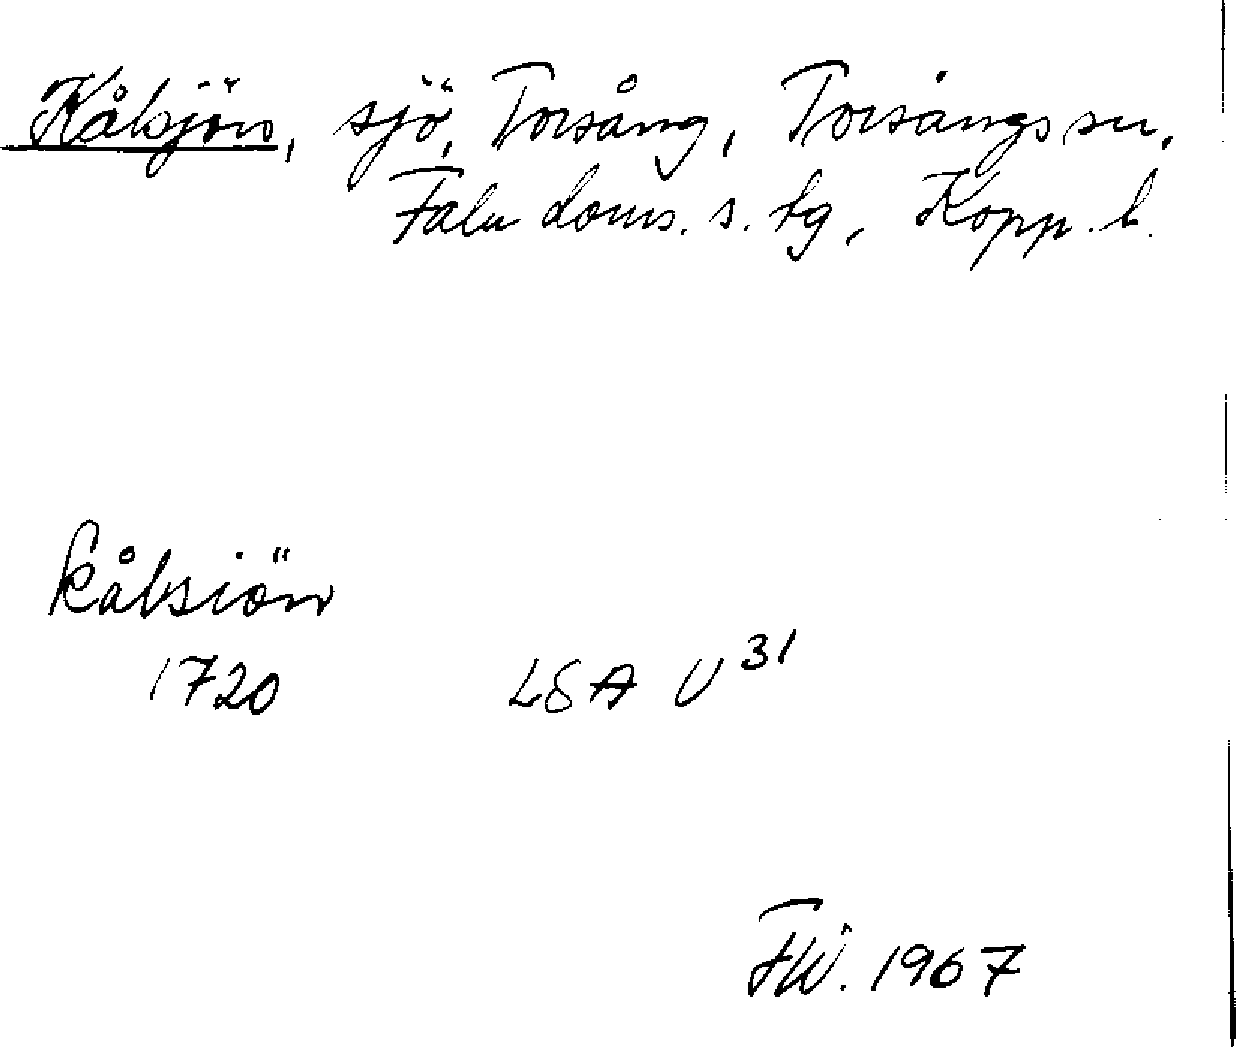 Kålsjön, sjö, Torsång, Torsångs sn.
Falu doms. s. tg, Kopp. l.
kålsiön
1720 LSA U 31
FW. 1967